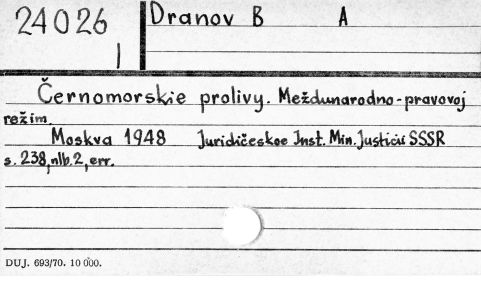 24026
I
Dranov B A
Černomorskie prolivy. Meždunarodno-pravovoj
režim.
Moskva 1948 Juridičeskoe Inst. Min. Justicii SSSR
s. 238, nlb. 2, err.
DUJ. 693/70. 10 000.